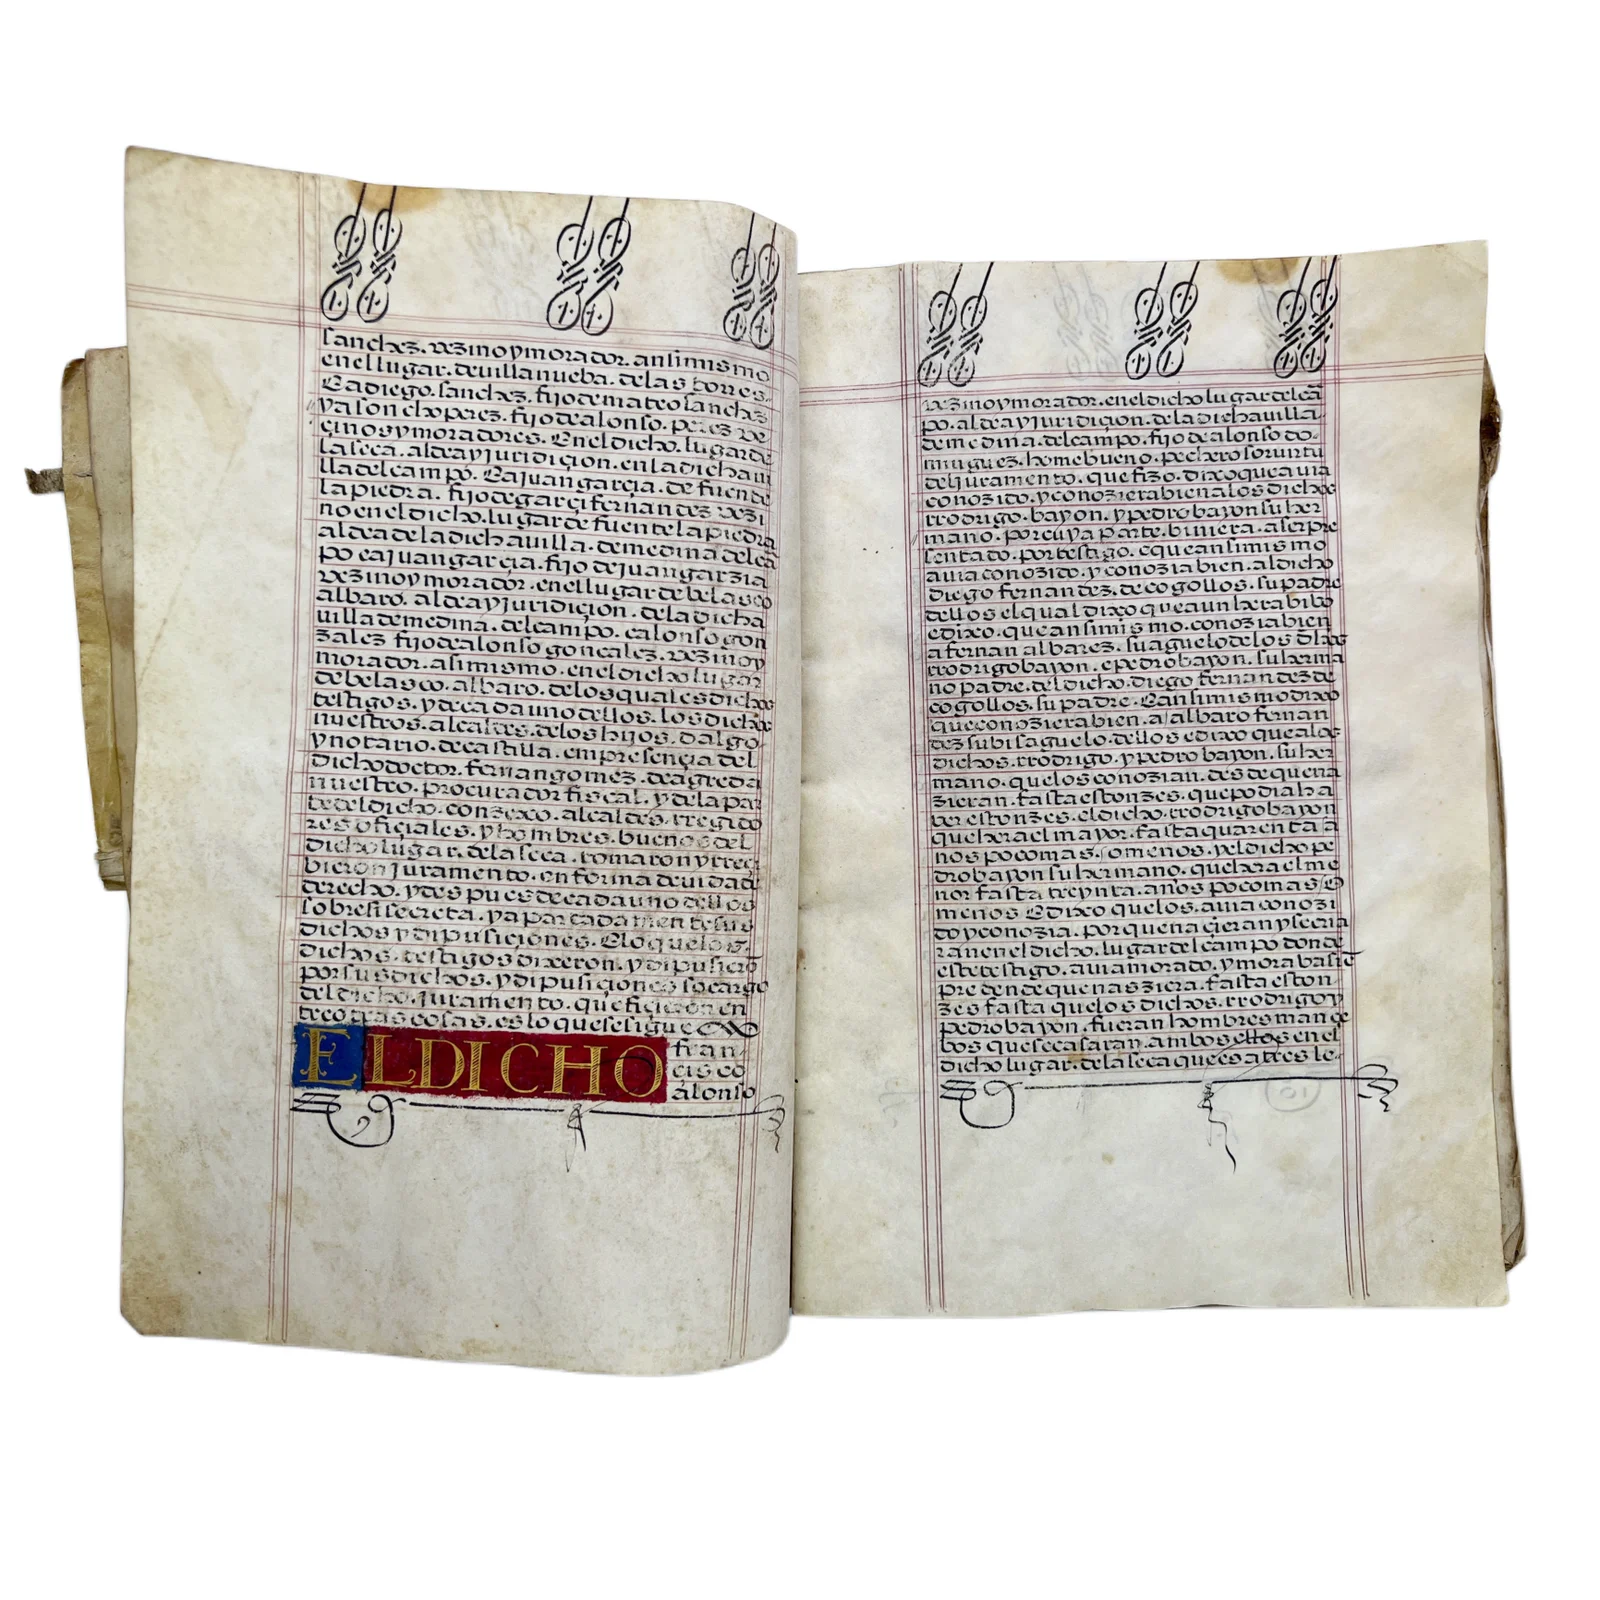 sanchez. vezino y morador. ansimismo
en el lugar. de villanueba. de las torres.
E a diego. sanchez. fijo de mateo sanchez
y a son cho perez. fijo de alonso. perez ve
çinos y moradores. En el dicho. lugar de
la seca. aldea y juridiçion. en la dicha vi
lla del campo. E a juan garçia. de fuente
la piedra. fijo de garçi fernandez vezi
no en el dicho. lugar de fuente la piedra
aldea de la dicha villa. de medina del cã
po e a juan garçia. fijo de juan garzia
vezino y morador. en el lugar de belasco
albaro. aldea y juridiçion. de la dicha
villa de medina. del campo. e alonso gon
zalez fijo de alonso gonçalez. vezino y
morador. asimismo. en el dicho lugar
de belasco. albaro. de los quales dichos
testigos. y de cada uno dellos. los dichos
nuestros. alcaldes. de los hijos. dalgo.
y notario. de castilla. en presençia del
dicho doctor. fernan gomez. de agreda
nuestro. procurador fiscal. y de la par
te del dicho. conzexo. alcaldes. rregido
res ofiçiales. y hombres. buenos del
dicho lugar. de la seca. tomaron y rreçi
bieron juramento. en forma devida de
derecho. y despues de cada uno dellos
sobre si secreta. y apartadamente sus
dichos y dipusiçiones. E lo que los.
dichos. testigos dixeron. y dipusierõ
por sus dichos. y dipusiçiones so cargo
del dicho. juramento. que fiçieron en
tre otras cosas. es lo que se sigue
EL DICHO fran
cisco
alonso
vezino y morador. en el dicho lugar del cã
po. aldea y juridiçion. de la dicha villa.
de medina. del campo. fijo de alonso do-
minguez. home bueno. pechero so virtu
del juramento. que fizo. dixo que avia
conozido. y conoziera bien a los dichos
rrodrigo. bayon. y pedro bayon su her
mano. por cuya parte. biniera. a ser pre
sentado. por testigo. e que ansimismo
avia conozido. y conozia bien. al dicho
diego fernandez. de cogollos. su padre
dellos el qual dixo que aun hera bibo
e dixo. que ansimismo. conozia bien
a fernan albarez. su aguelo de los dhos
rrodrigo bayon. e pedro bayon. su herma
no padre. del dicho. diego fernandez de
cogollos. su padre. E ansimismo dixo
que conoziera bien. a / albaro fernan
dez su bisaguelo. dellos e dixo que a los
dichos. rrodrigo. y pedro bayon. su her
mano. que los conozian. desde que na
zieran. fasta estonzes. que podia ha
ber estonzes. el dicho. rrodrigo bayon
que hera el mayor. fasta quarenta a
ños poco mas. / o menos. y el dicho pe
dro bayon su hermano. que hera el me
nor fasta treynta. años poco mas / o
menos E dixo que los. avia conozi
do y conozia. por que naçieran y se cria
ran en el dicho. lugar del campo donde
este testigo. avia morado. y moraba siẽ
pre dende que nasziera. fasta eston
zes fasta que los dichos. rrodrigo y
pedro bayon. fueran hombres mançe
bos que se casaran. ambos ellos en el
dicho lugar. de la seca que es a tres le-